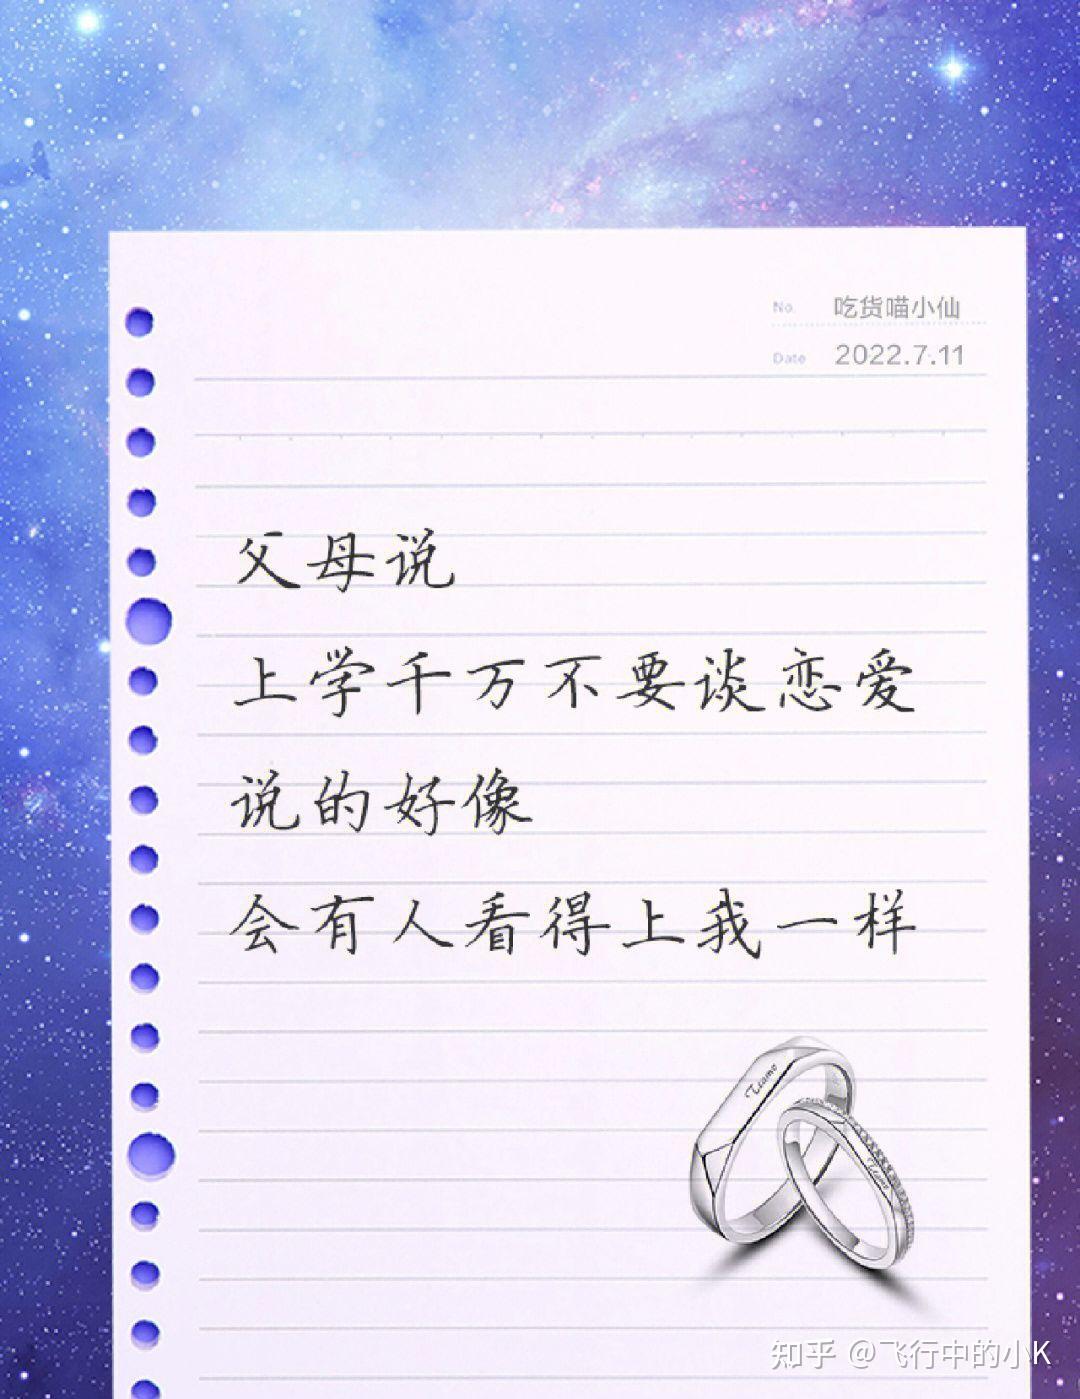 No. 吃货喵小仙
Date 2022.7.11
父母说
上学千万不要谈恋爱
说的好像
会有人看得上我一样
Tiamo
Tiamo
知乎 @飞行中的小K